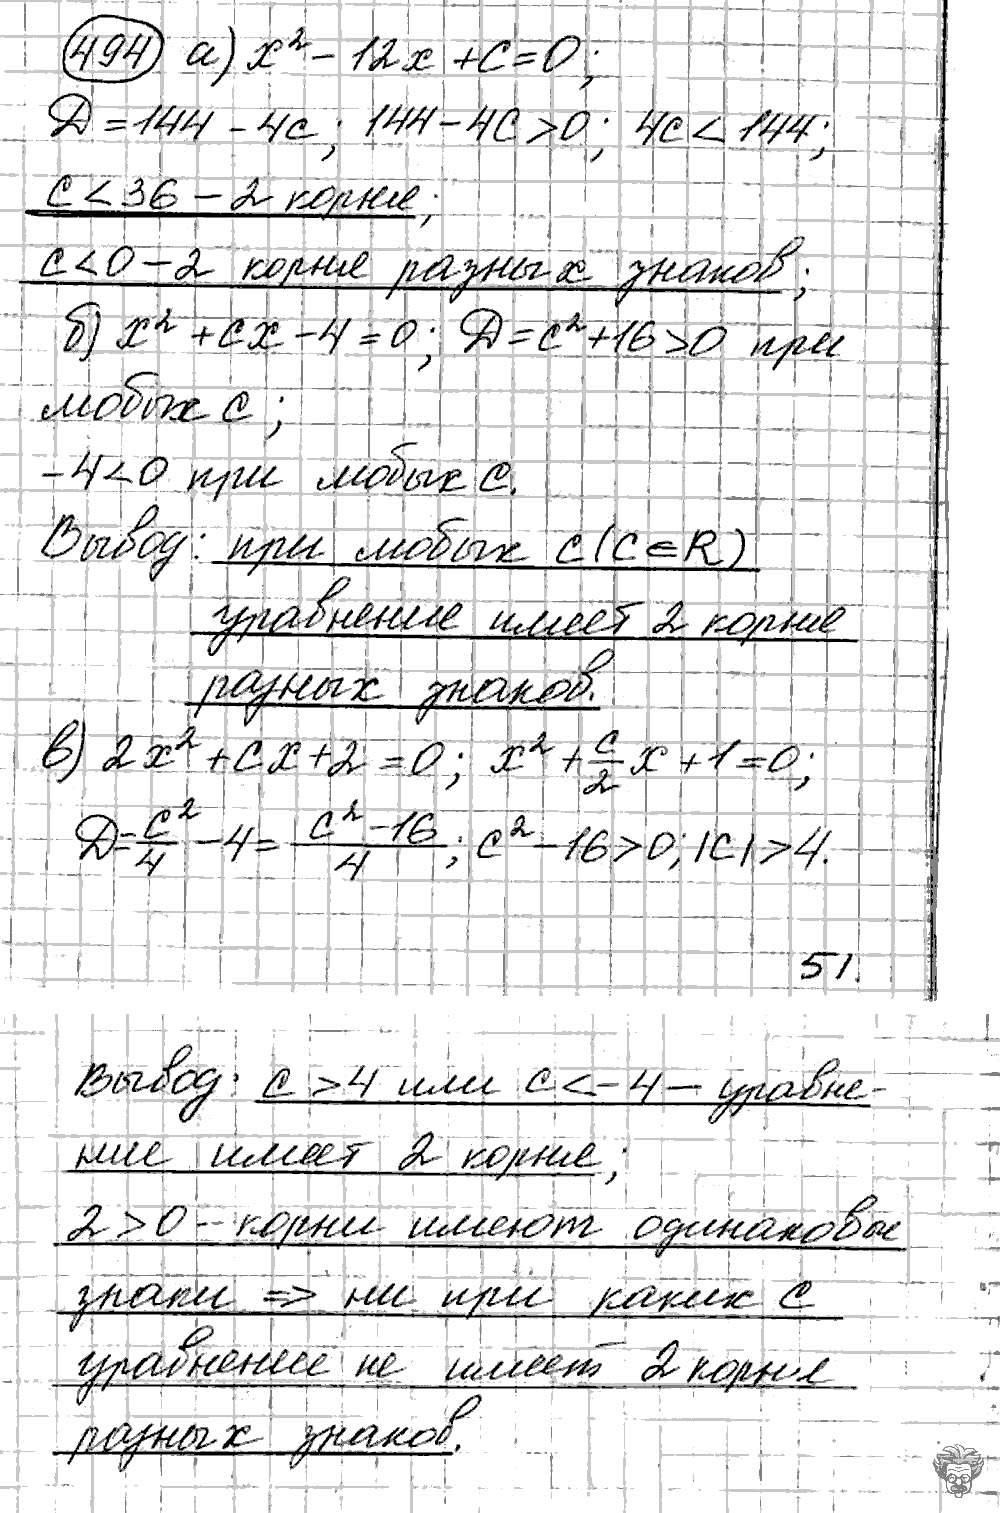 494 а) x² - 12x + c = 0;
Д = 144 - 4c; 144 - 4c > 0; 4c < 144;
c < 36 - 2 корня;
c < 0 - 2 корня разных знаков;
б) x² + cx - 4 = 0; Д = c² + 16 > 0 при
любых c;
-4 < 0 при любых c.
Вывод: при любых c (c ∈ R)
уравнение имеет 2 корня
разных знаков.
в) 2x² + cx + 2 = 0; x² + c/2 x + 1 = 0;
Д = c²/4 - 4 = (c² - 16)/4; c² - 16 > 0; |c| > 4.
51.
Вывод: c > 4 или c < -4 - уравне-
ние имеет 2 корня;
2 > 0 - корни имеют одинаковые
знаки => ни при каких c
уравнение не имеет 2 корня
разных знаков.